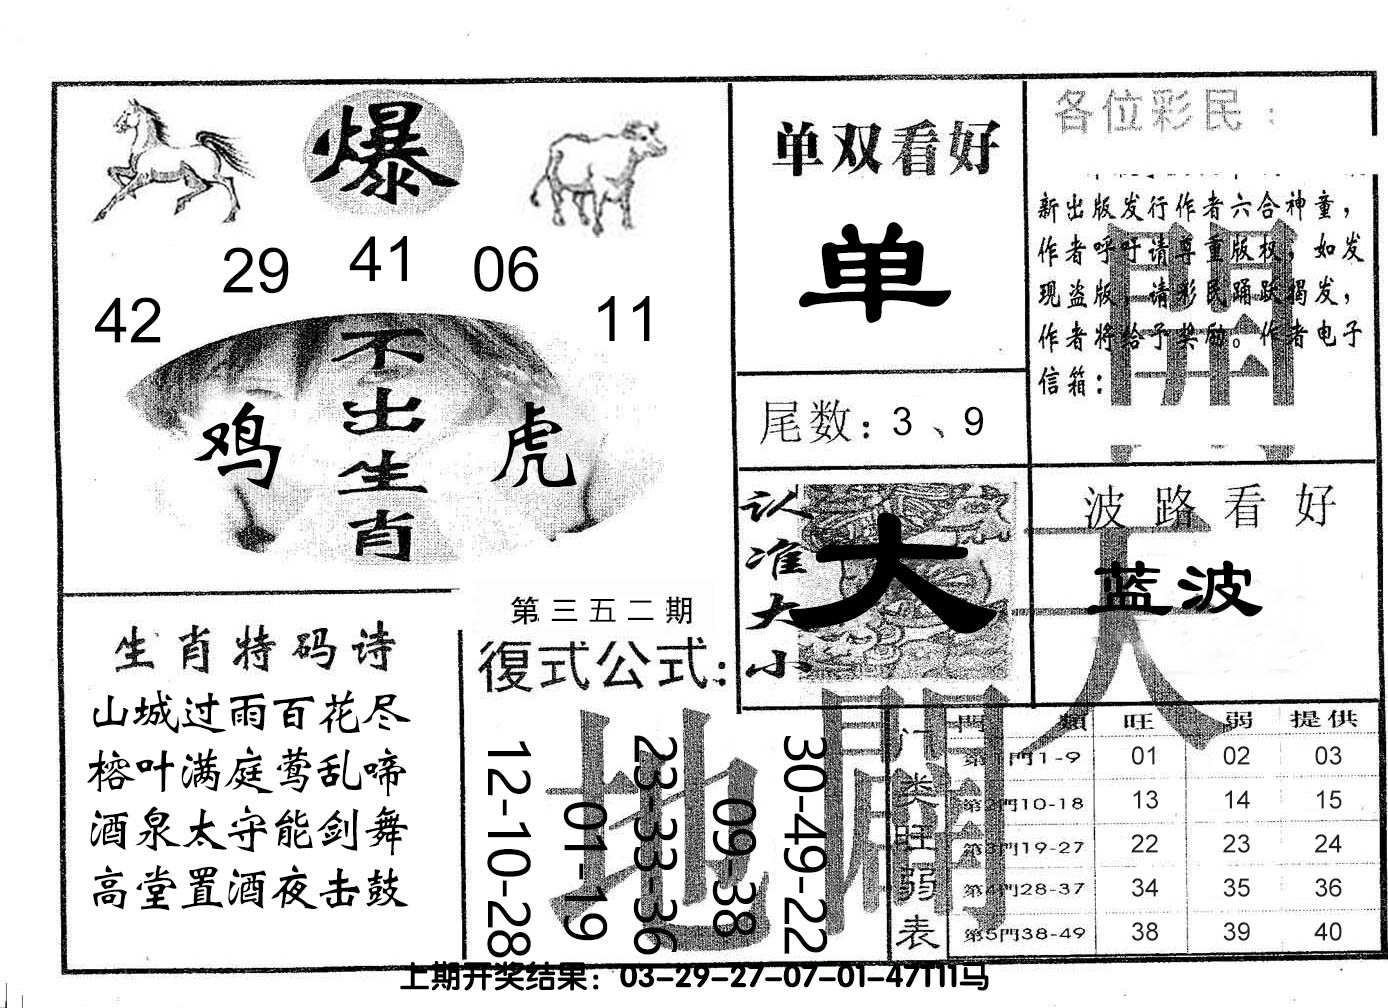 爆
42 29 41 06 11
不出生肖
鸡 虎
单双看好
单
尾数：3、9
各位彩民：
新出版发行作者六合神童，
作者呼吁请尊重版权，如发
现盗版，请彩民踊跃揭发，
作者将给予奖励。作者电子
信箱：
認准大小
大
波路看好
蓝波
生肖特码诗
山城过雨百花尽
榕叶满庭莺乱啼
酒泉太守能剑舞
高堂置酒夜击鼓
第三五二期
復式公式：
12-10-28
01-19
23-33-36
09-38
30-49-22
天
地
開
门类旺弱表
門類 旺 弱 提供
第1門1-9 01 02 03
第2門10-18 13 14 15
第3門19-27 22 23 24
第4門28-37 34 35 36
第5門38-49 38 39 40
上期开奖结果：03-29-27-07-01-47T11马